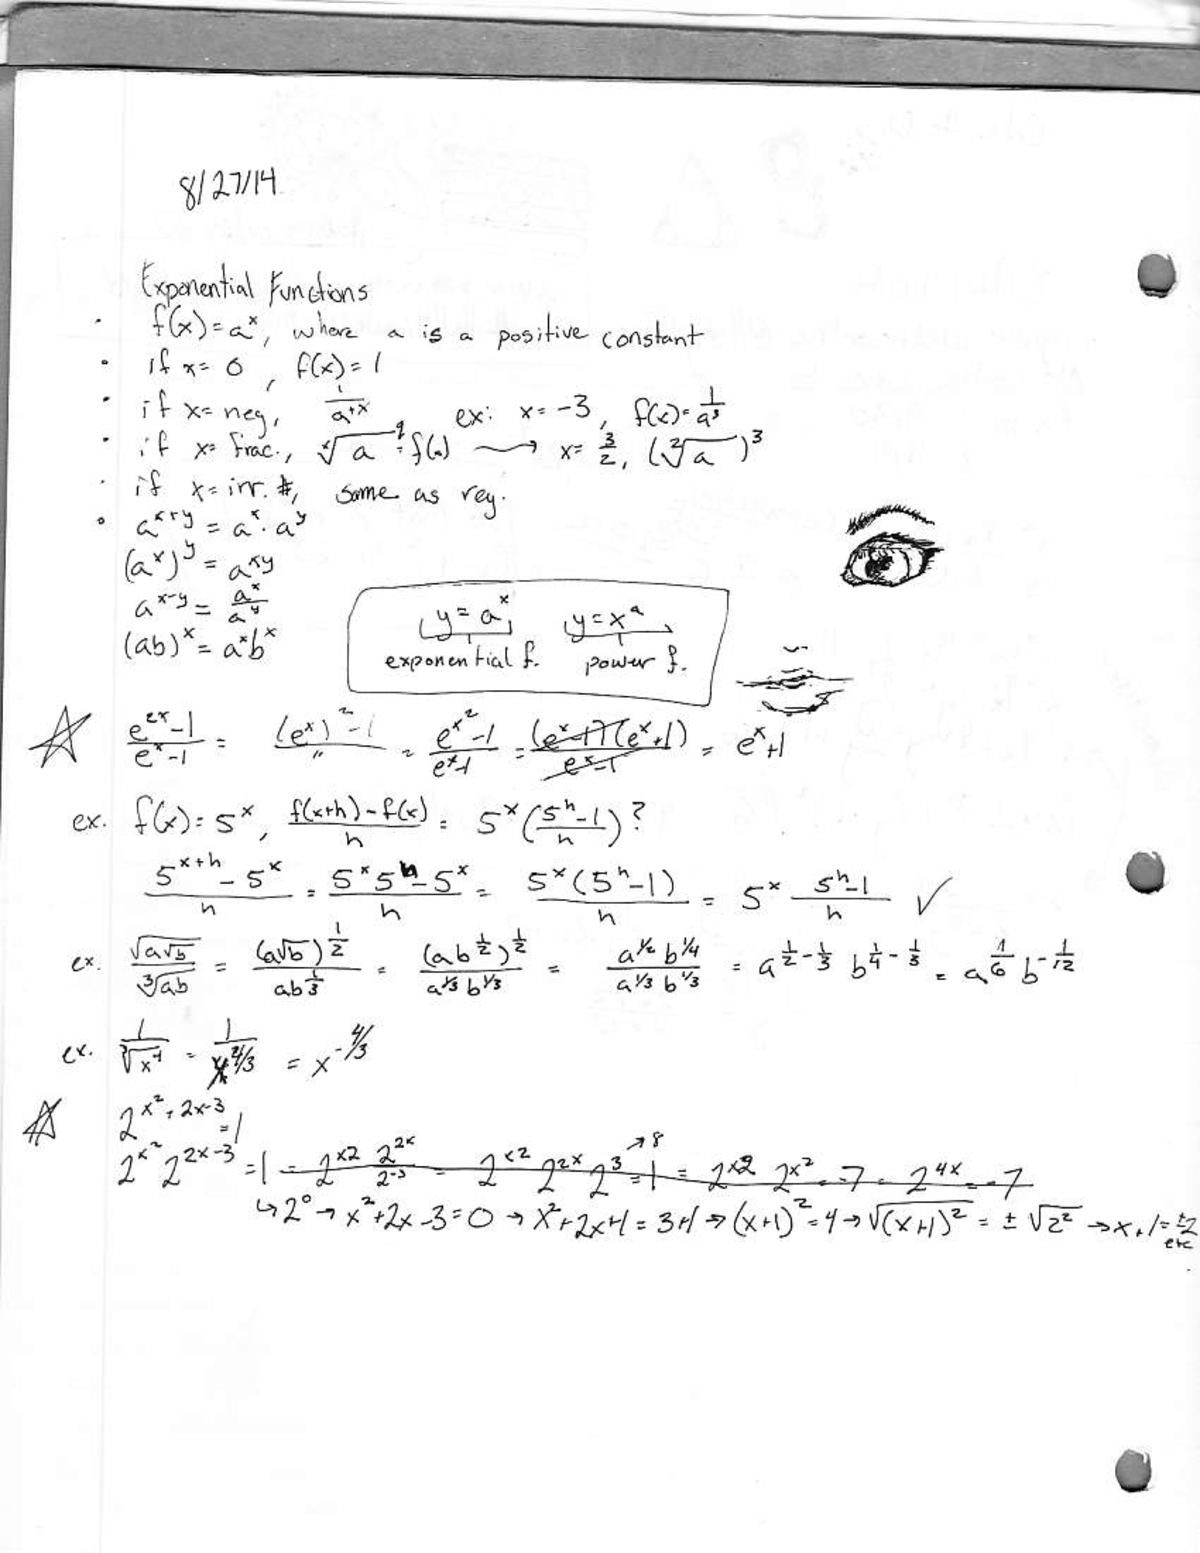 8/27/14
Exponential Functions
· f(x) = a^x, where a is a positive constant
· if x = 0, f(x) = 1
· if x = neg, 1/a^{+x} ex: x = -3, f(x) = 1/a^3
· if x = frac., ˣ√a^q = f(x) ⟶ x = 3/2, (²√a)^3
· if x = irr. #, same as reg.
· a^{x+y} = a^x · a^y
(a^x)^y = a^{xy}
a^{x-y} = a^x/a^y
(ab)^x = a^x b^x
y = a^x y = x^a
exponential f. power f.
☆ (e^{2x} - 1)/(e^x - 1) = ((e^x)^2 - 1)/" = (e^{x^2} - 1)/(e^x - 1) = ((e^x - 1)(e^x + 1))/(e^x - 1) = e^x + 1
ex. f(x) = 5^x, (f(x+h) - f(x))/h = 5^x((5^h - 1)/h)?
(5^{x+h} - 5^x)/h = (5^x 5^h - 5^x)/h = (5^x(5^h - 1))/h = 5^x (5^h - 1)/h ✓
ex. √(a√b)/³√(ab) = (a√b)^{1/2}/ab^{1/3} = (ab^{1/2})^{1/2}/(a^{1/3} b^{1/3}) = (a^{1/2} b^{1/4})/(a^{1/3} b^{1/3}) = a^{1/2 - 1/3} b^{1/4 - 1/3} = a^{1/6} b^{-1/12}
ex. 1/³√(x^4) = 1/x^{4/3} = x^{-4/3}
☆ 2^{x^2 + 2x - 3} = 1
2^{x^2} 2^{2x-3} = 1 = 2^{x2} 2^{2x}/2^{-3} = 2^{x2} 2^{2x} 2^3 = 1 = 2^{x2} 2^{x^2} = -7 = 2^{4x} = -7
→ 8
↳ 2^0 → x^2 + 2x - 3 = 0 → x^2 + 2x + 1 = 3 + 1 → (x+1)^2 = 4 → √((x+1)^2) = ± √(2^2) → x + 1 = ±2
etc